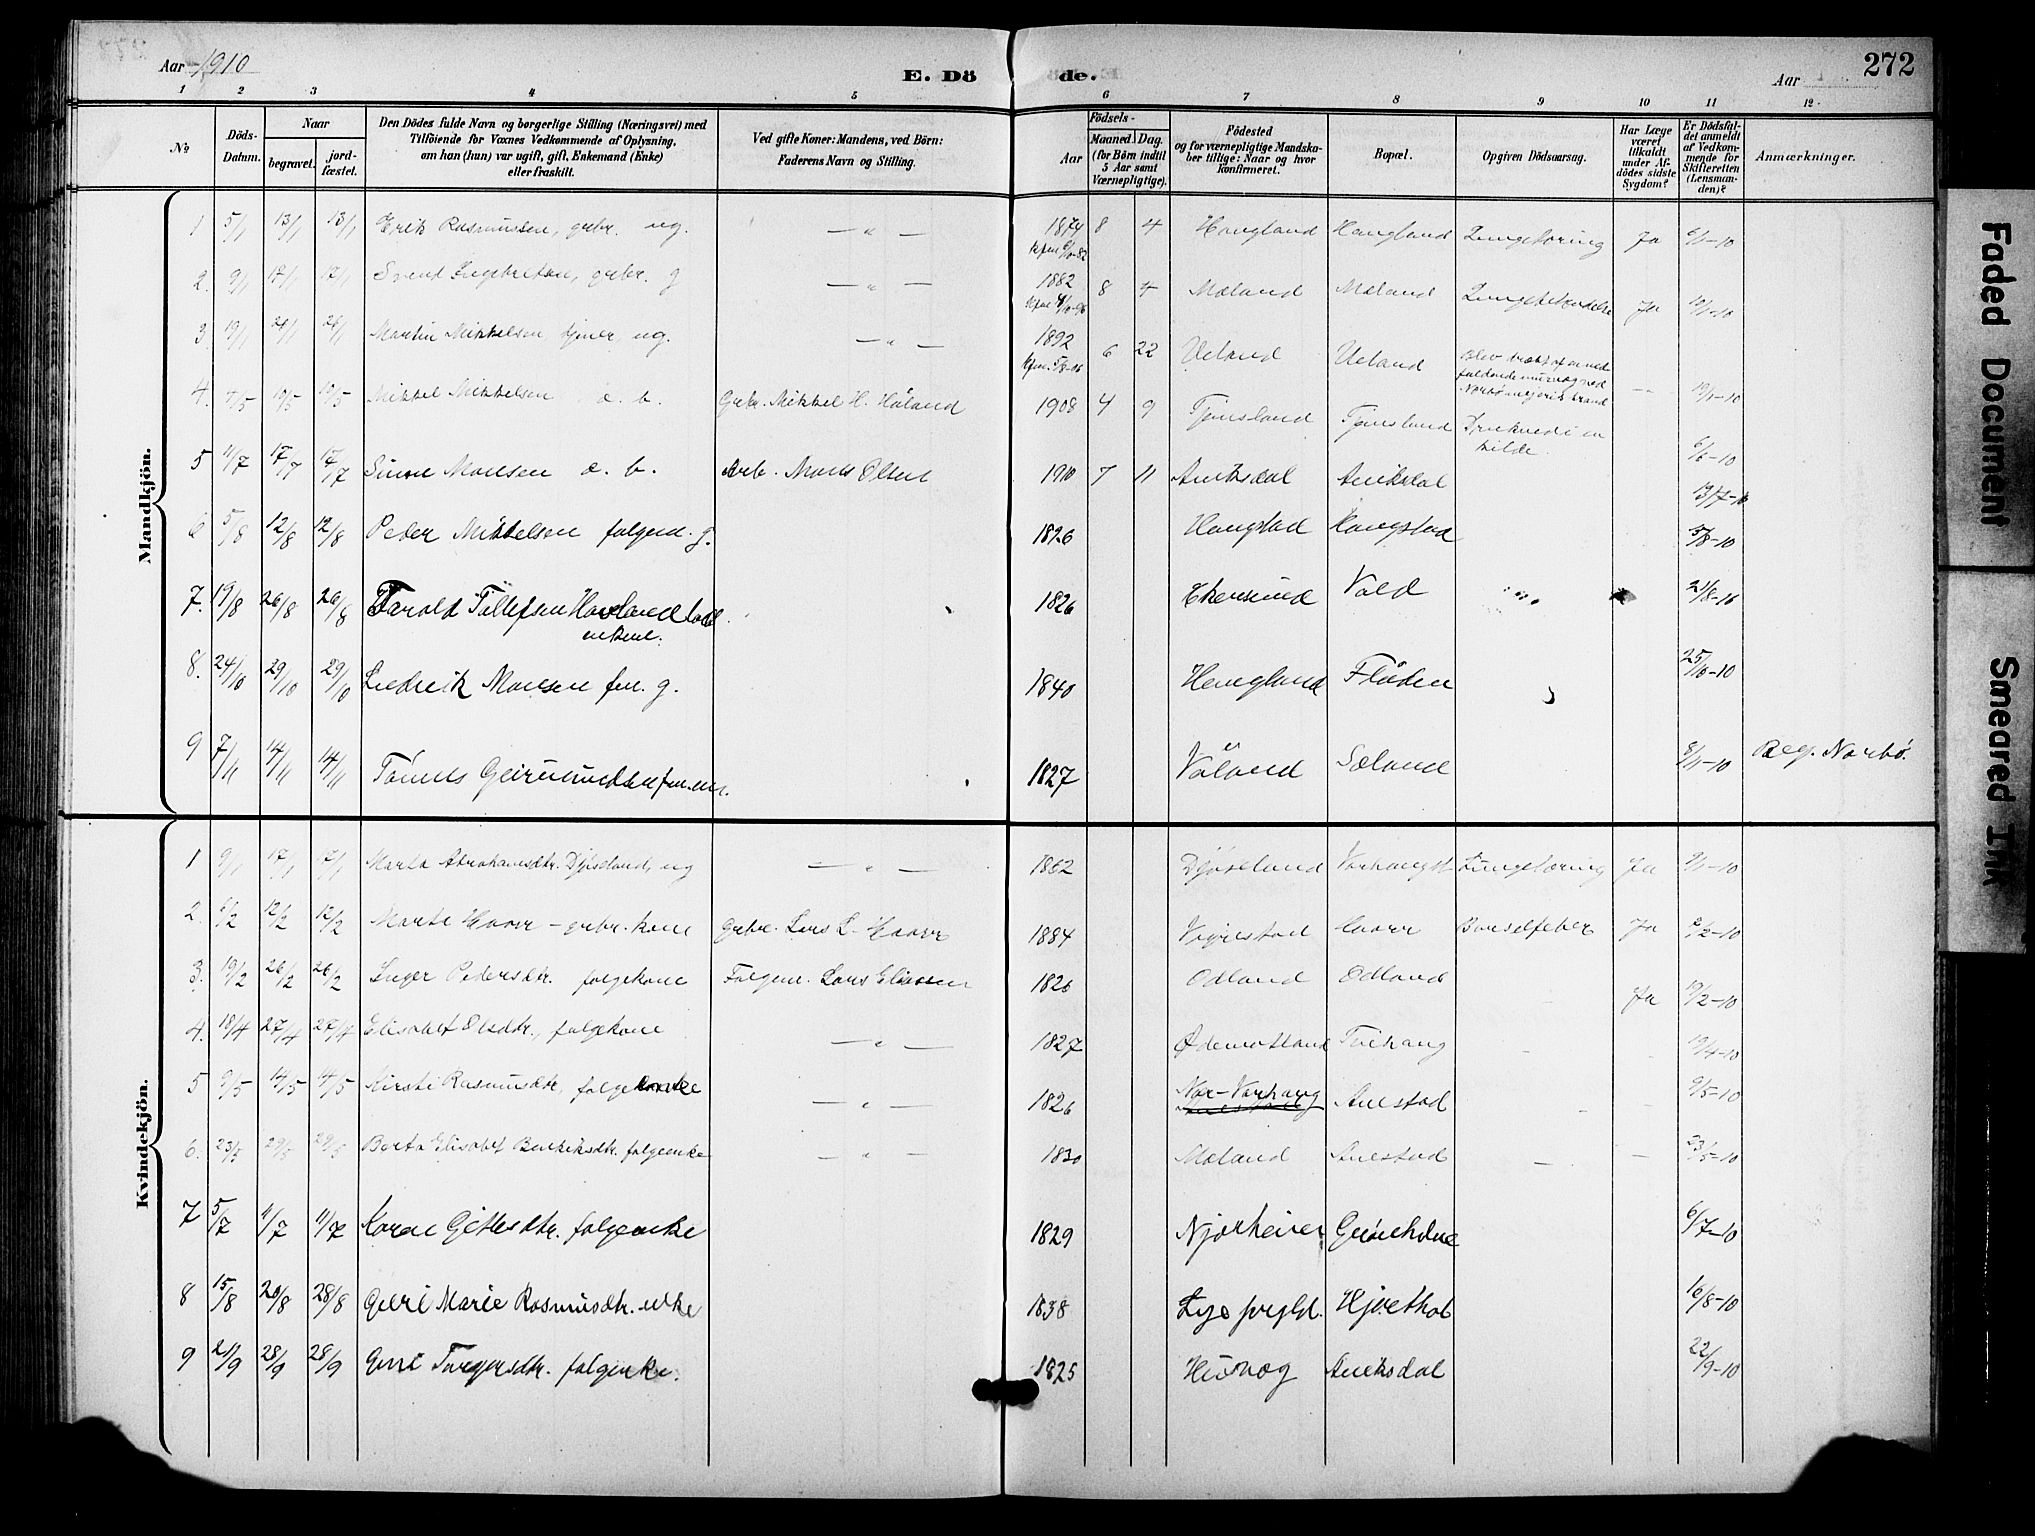 Aar 1910
E. Dö de.
Aar
272
1 2 3 4 5 6 7 8 9 10 11 12
No
Döds-Datum.
Naar
begravet.
jordfæstet.
Den Dödes fulde Navn og borgerlige Stilling (Næringsvei) med
Tilföiende for Voxnes Vedkommende af Oplysning,
om han (hun) var ugift, gift, Enkemand (Enke)
eller fraskilt.
Ved gifte Koner: Mandens, ved Börn:
Faderens Navn og Stilling.
Födsels-
Aar
Maaned. Dag.
(for Börn indtil
5 Aar samt
Værnepligtige).
Födested
og for værnepligtige Mandskaber tillige: Naar og hvor
konfirmeret.
Bopæl.
Opgiven Dödsaarsag.
Har Læge
været
tilkaldt
under Afdödes sidste
Sygdom?
Er Dödsfaldet anmeldt
af Vedkommende for
Skifteretten
(Lensmanden)?
Anmærkninger.
Mandkjön.
1 5/1 13/1 13/1 Erik Rasmussen, grbr. ug. — " — 1874 8 4 Haugland Haugland Lungetæring Ja 6/1-10
2. 9/1 17/1 17/1 Svend Ingebretsen, grbr. g — " — 1882 8 4 Mæland Mæland Ja 10/1-10
3. 19/1 26/1 26/1 Martin Mikkelsen tjener, ug. — " — 1892 6 22 Ueland Ueland -- 19/1-10
4. 10/5 10/5 Mikkel Mikkelsen u. b. Grbr. Mikkel H. Håland 1908 4 9 Tjensland Tjensland Druknede i en kilde. 6/6-10
5 11/7 17/7 17/7 Simon Monsen u. b. Arb. Mons Olsen 1910 7 11 Aniksdal Aniksdal 13/7-10
6 5/8 12/8 12/8 Peder Mikkelsen folgem. g. 1826 Haugstad Haugstad 5/8-10
7. 19/8 26/8 26/8 Harold Tollefsen Havsland enkem. 1826 Ekersund Vold 21/8-10
8. 24/10 29/10 29/10 Fredrik Monsen fm. g. 1840 Haugland Flåden 25/10-10
9 7/11 14/11 14/11 Tönnes Geirmundsen fm. em. 1827 Våland Sæland 8/11-10 Beg. Norbö.
Kvindekjön.
1 9/1 17/1 17/1 Marta Abrahamsdtr. Djöseland, ug — " — 1862 Djöseland Varhaugst Lungetæring Ja 9/1-10
2. 6/2 12/2 12/2 Marta Haarr - grbr. kone Grbr. Lars L. Haarr 1884 Vigrestad Haarr Barselfeber Ja 8/2-10
3. 19/2 26/2 26/2 Inger Pedersdtr. folgekone Folgem. Lars Eliassen 1826 Odland Odland Ja 19/2-10
4. 18/4 27/4 27/4 Elisabet Olsdtr., folgekone — " — 1827 Ødemotland Tuehaug - 19/4-10
5 9/5 14/5 14/5 Kirsti Rasmusdtr. folgeenke — " — 1826 Nor-Varhaug Auestad - - 9/5-10
6. 23/5 29/5 29/5 Berta Elisabet Bendiksdtr. folgeenke — " — 1830 Mæland Auestad - - 23/5-10
7 5/7 11/7 11/7 Karen Gitlesdtr. folgeenke 1829 Njærheim 6/7-10
8 15/8 20/8 28/8 Guri Marie Rasmusdtr. enke 1838 Lye prgld. Hjvethol 16/8-10
9 21/9 28/9 28/9 Guri Torgersdtr. folgenke. 1825 Husvog Aniksdal 22/9-10
Faded Document
Smeared Ink